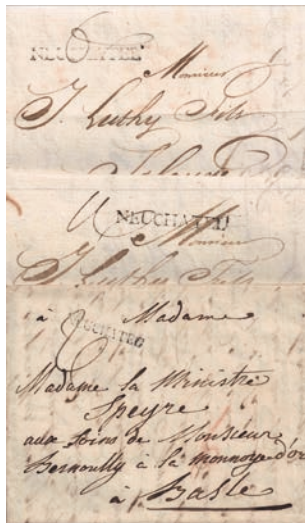 Monsieur
J. Luthy Fils
NEUCHATEL
Monsieur
J. Luthy Fils
à Madame
NEUCHATEL
Madame la Ministre
Speyre
aux soins de Monsieur
Bernoully à la monnoye d'or
à Basle